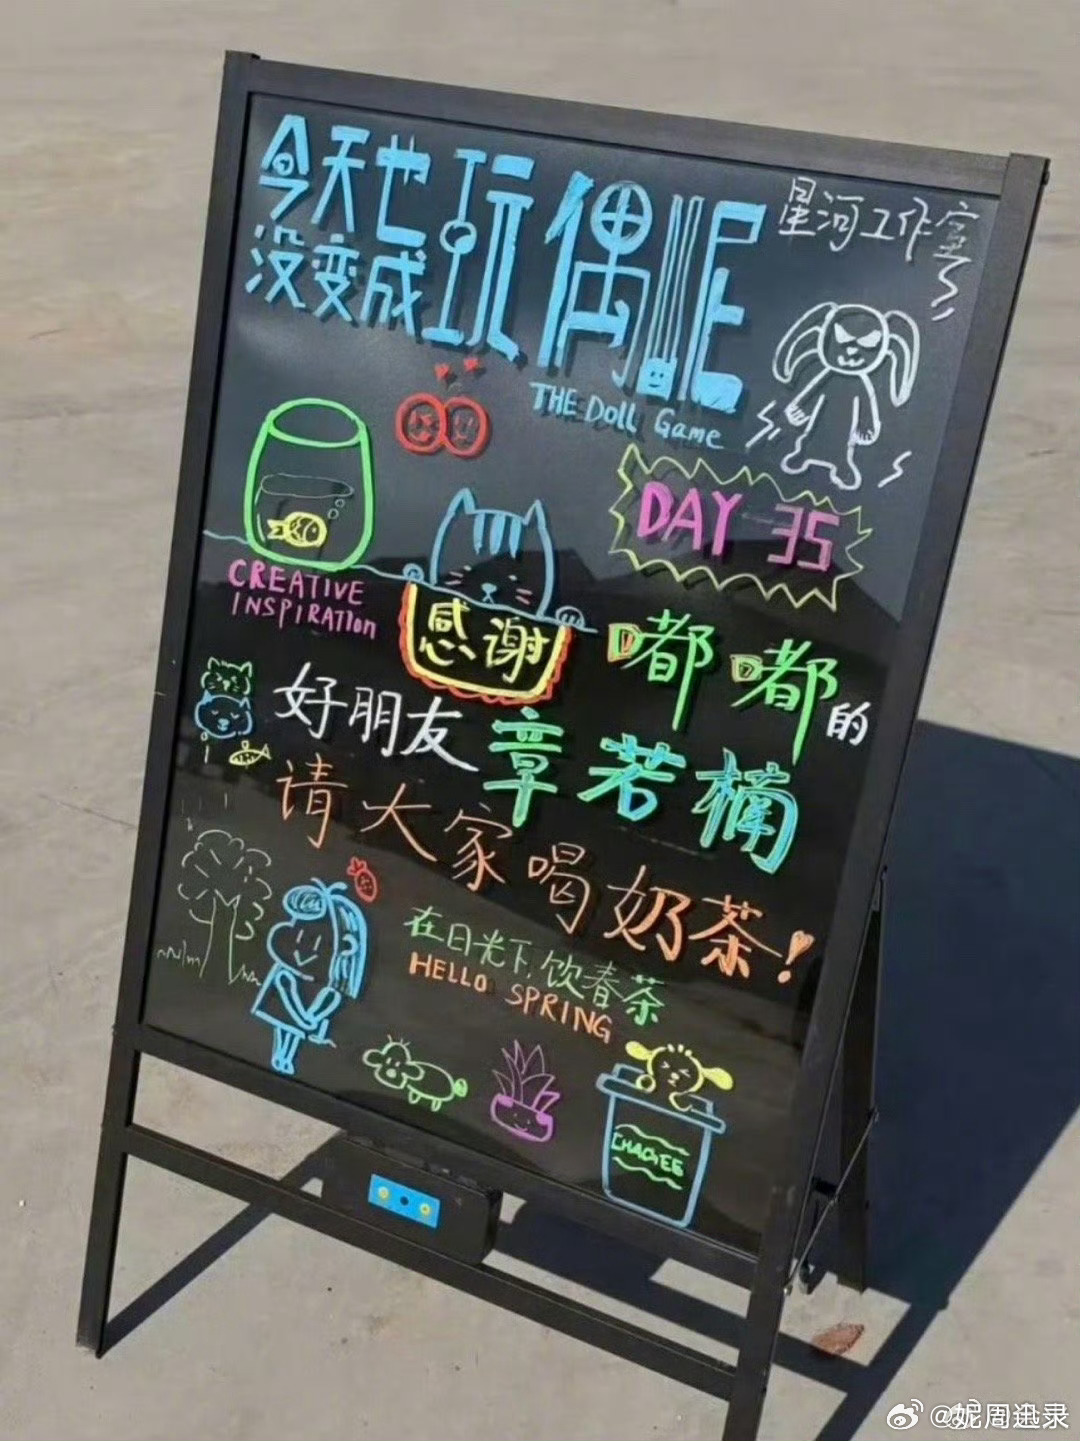 今天也
没变成
玩偶呢
THE DOLL GAME
星河工作室
DAY 35
CREATIVE
INSPIRATION
感谢
嘟嘟的
好朋友章若楠
请大家喝奶茶!
在日光下,饮春茶
HELLO SPRING
CHAGEE
@妮周迅录